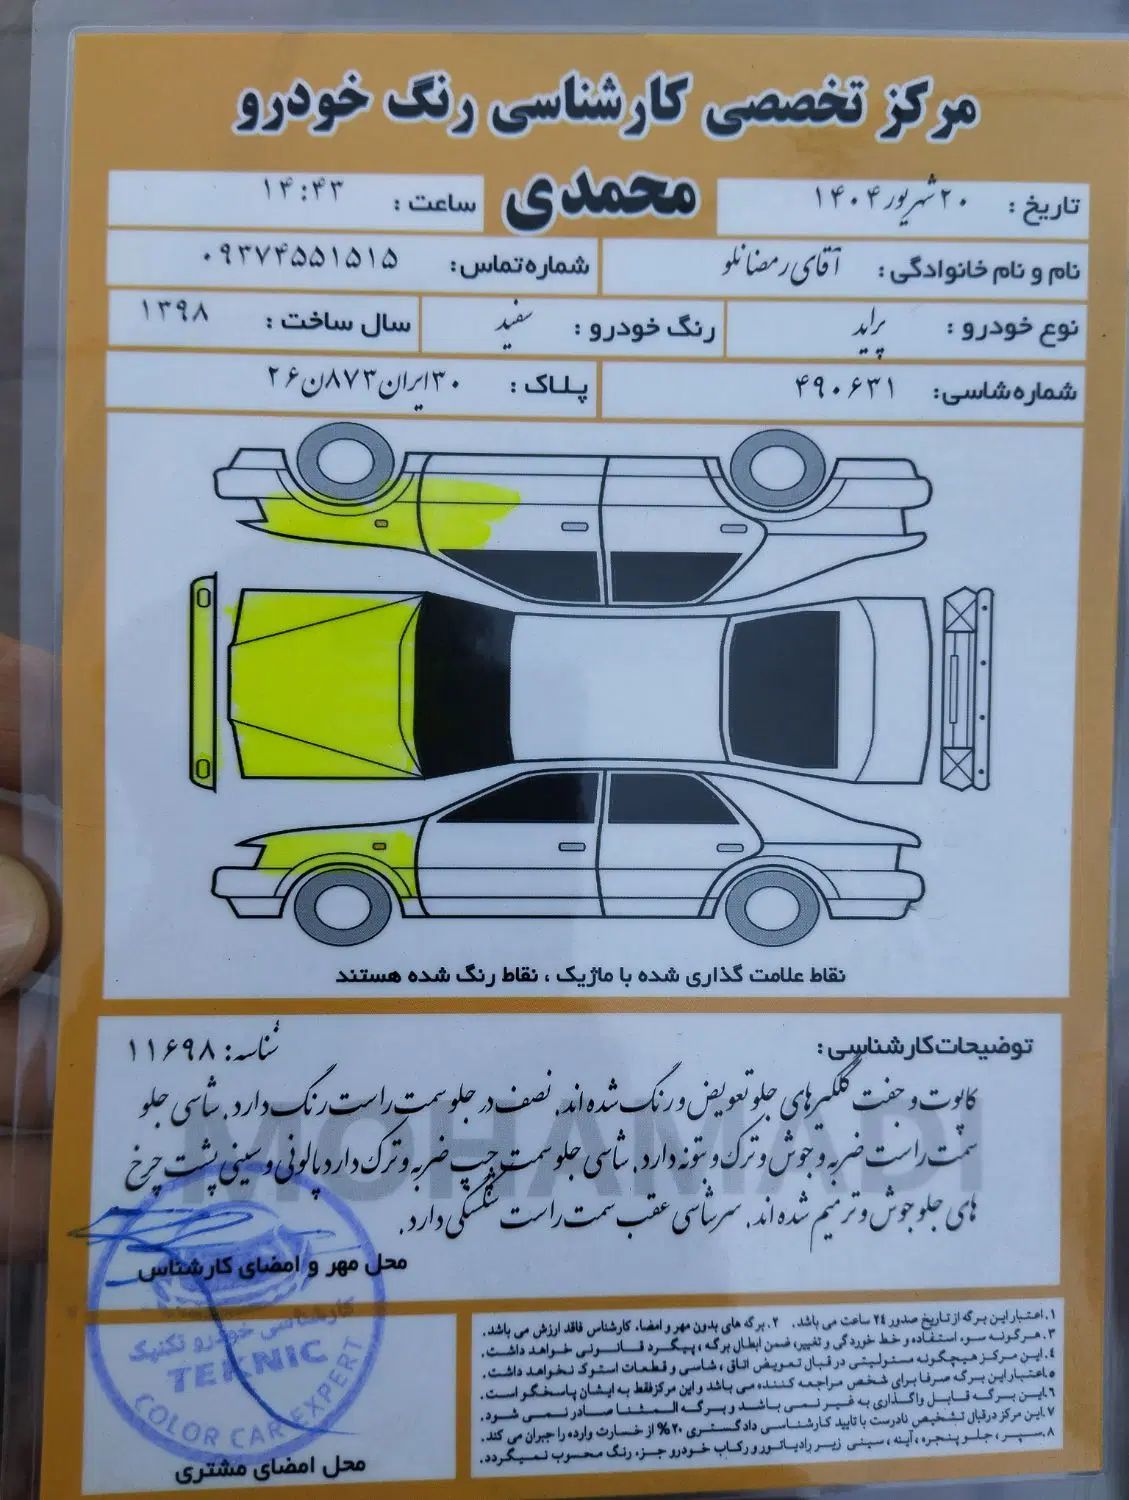 مرکز تخصصی کارشناسی رنگ خودرو
محمدی
تاریخ : ۲۰ شهریور ۱۴۰۴
ساعت : ۱۴:۴۳
نام و نام خانوادگی : آقای رمضانلو
شماره تماس : ۰۹۳۷۴۵۵۱۵۱۵
نوع خودرو : پراید
رنگ خودرو : سفید
سال ساخت : ۱۳۹۸
شماره شاسی : ۴۹۰۶۳۱
پلاک : ۳۰ایران۸۷۳ن۲۶
نقاط علامت گذاری شده با ماژیک ، نقاط رنگ شده هستند
توضیحات کارشناسی :
شناسه: ۱۱۶۹۸
کاپوت و جفت گلگیرهای جلو تعویض و رنگ شده اند. نصف در جلو سمت راست رنگ دارد. شاسی جلو
سمت راست ضربه و جوش و ترک و بتونه دارد. شاسی جلو سمت چپ ضربه و ترک دارد پالونی و سینی پشت چرخ
های جلو جوش و ترمیم شده اند. سرشاسی عقب سمت راست شکستگی دارد.
MOHAMADI
محل مهر و امضای کارشناس
کارشناسی خودرو تکنیک
TEKNIC
COLOR CAR EXPERT
محل امضای مشتری
۱. اعتبار این برگه از تاریخ صدور ۲۴ ساعت می باشد. ۲. برگه های بدون مهر و امضاء کارشناس فاقد ارزش می باشد.
۳. هرگونه سوء استفاده و خط خوردگی و تغییر، ضمن ابطال برگه ، پیگرد قانونی خواهد داشت.
۴. این مرکز هیچگونه مسئولیتی در قبال تعویض اتاق ، شاسی و قطعات استوک نخواهد داشت.
۵. اعتبار این برگه صرفا برای شخص مراجعه کننده می باشد و این مرکز فقط به ایشان پاسخگو است.
۶. این برگه قابل واگذاری به غیر نمی باشد و برگه المثنا صادر نمی شود.
۷. این مرکز درقبال تشخیص نادرست با تایید کارشناسی دادگستری ۲۰% از خسارت وارده را جبران می کند.
۸. سپر ، جلو پنجره ، آینه ، سینی زیر رادیاتور و رکاب خودرو جزء رنگ محسوب نمیگردد.